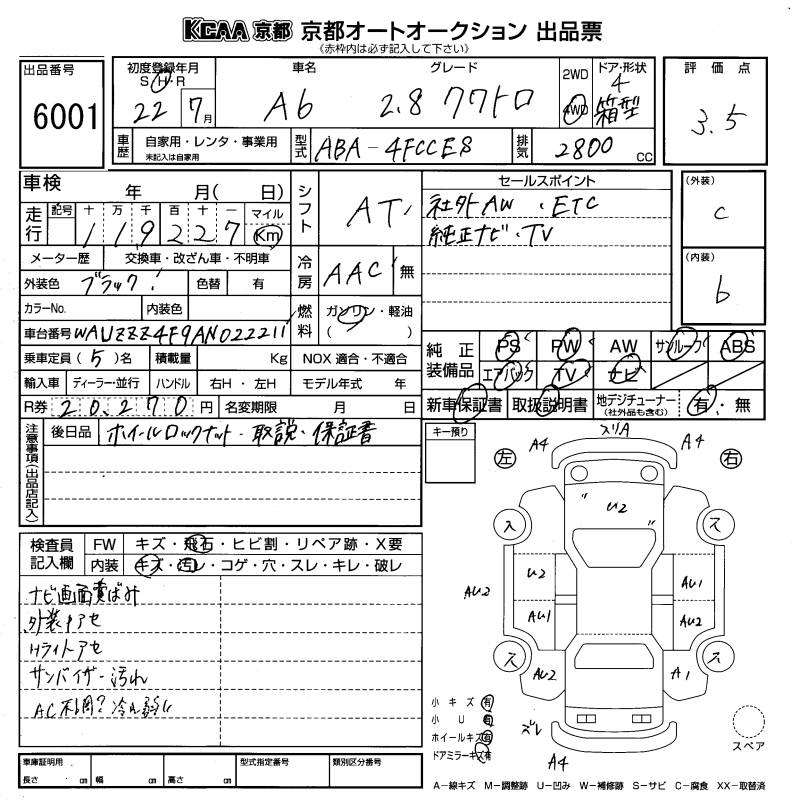 KCAA 京都 京都オートオークション 出品票
《赤枠内は必ず記入して下さい》
出品番号
6001
初度登録年月
S・H・R
22 7月
車名
A6
グレード
2.8 クワトロ
2WD
4WD
ドア・形状
4
箱型
評価点
3.5
車歴
自家用・レンタ・事業用
未記入は自家用
型式
ABA-4FCCES
排気
2800 CC
車検
年 月( 日)
走行
記号 十 万 千 百 十 一 マイル
119227 Km
メーター歴 交換車・改ざん車・不明車
外装色 ブラック
色替 有
カラーNo.
内装色
車台番号 WAUZZZ4F9AN022211
乗車定員 (5) 名
積載量 Kg
輸入車 ディーラー・並行
ハンドル 右H・左H
R券 20,270 円
名変期限 月 日
シフト AT
冷房 AAC 無
燃料 ガソリン・軽油
NOX 適合・不適合
モデル年式 年
セールスポイント
社外AW・ETC
純正ナビ・TV
(外装)
c
(内装)
b
純正装備品
PS PW AW サンルーフ ABS
エアバック TV ナビ
新車保証書 取扱説明書 地デジチューナー (社外品も含む) 有・無
注意事項(出品店記入)
後日品 ホイールロックナット・取説・保証書
キー預り
検査員記入欄
FW キズ・飛石・ヒビ割・リペア跡・X要
内装 キズ・汚レ・コゲ・穴・スレ・キレ・破レ
ナビ画面黄ばみ
外装アセ
Hライトアセ
サンバイザー汚れ
AC不調? 冷え弱い
スリA
A4 A4
左 右
U2
ス ス
U2 AU1
AU2
AU1 AU2
ス ス
AU2 A1
ズレ
A4
小キズ 有
小U 有
ホイールキズ 有
ドアミラーキズ 有
スペア
車庫証明用
長さ cm 幅 cm 高さ cm
型式指定番号
類別区分番号
A−線キズ M−調整跡 U−凹み W−補修跡 S−サビ C−腐食 XX−取替済